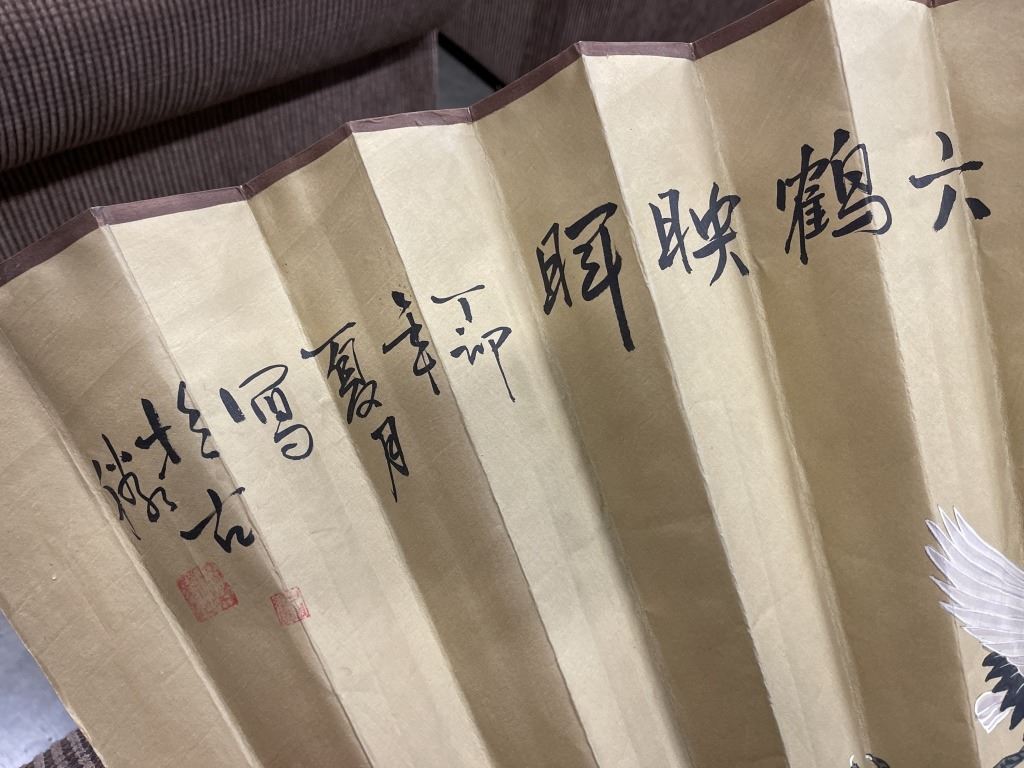 六鶴映暉
丁卯
年
夏月
寫
於
古